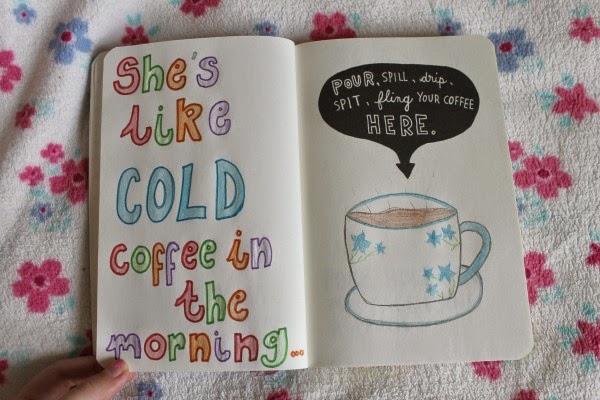 She's
like
COLD
coffee in
the
morning...
POUR, SPILL, drip,
SPIT, fling YOUR COFFEE
HERE.